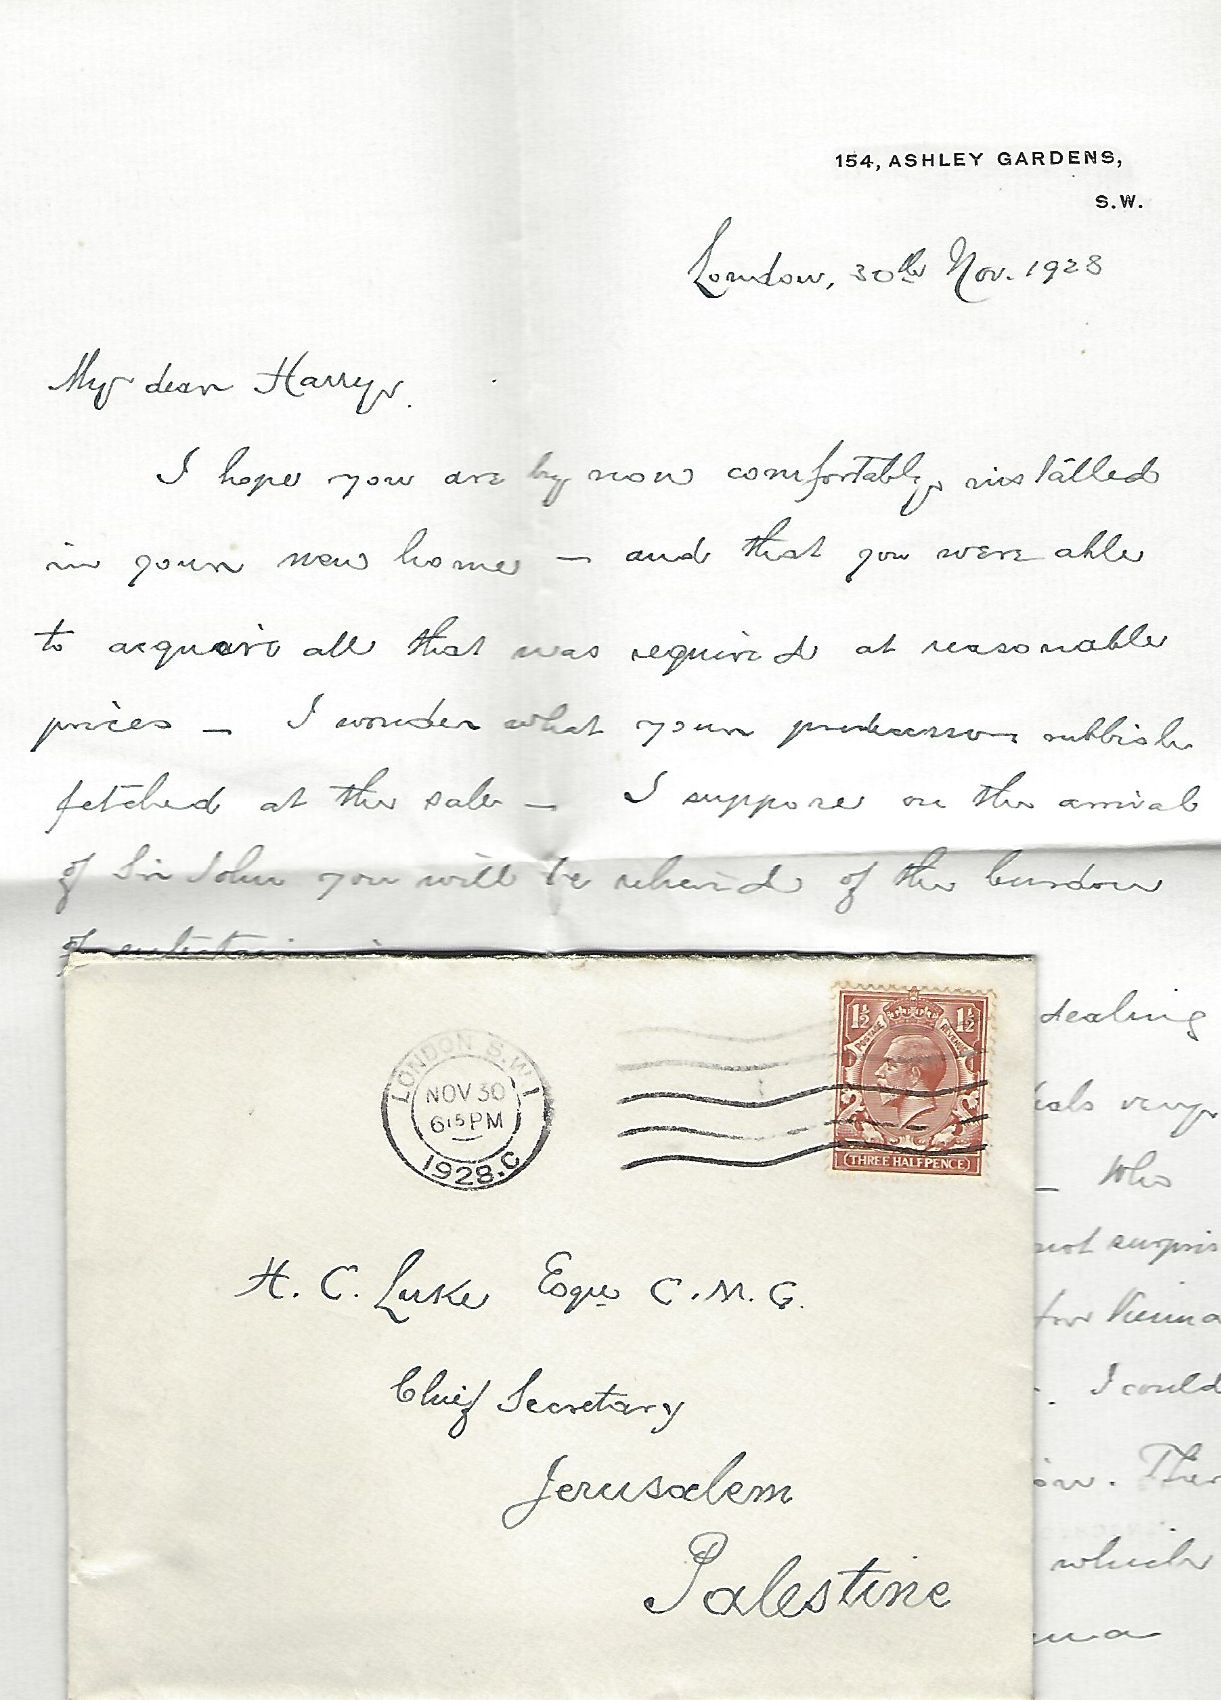 154, ASHLEY GARDENS,
S.W.
London, 30th Nov. 1928
My dear Harry.
I hope you are by now comfortably installed
in your new home — and that you were able
to acquire all that was required at reasonable
prices — I wonder what your predecessors rubbish
fetched at the sale — I suppose on the arrival
of Sir John you will be relieved of the burden
of
dealing
very
— Who
not surpris
for Vienna
. I could
. Ther
which
LONDON S.W.1
NOV 30
6 15 PM
1928. C
1½ 1½
POSTAGE REVENUE
THREE HALFPENCE
H. C. Luke Esqre C.M.G.
Chief Secretary
Jerusalem
Palestine